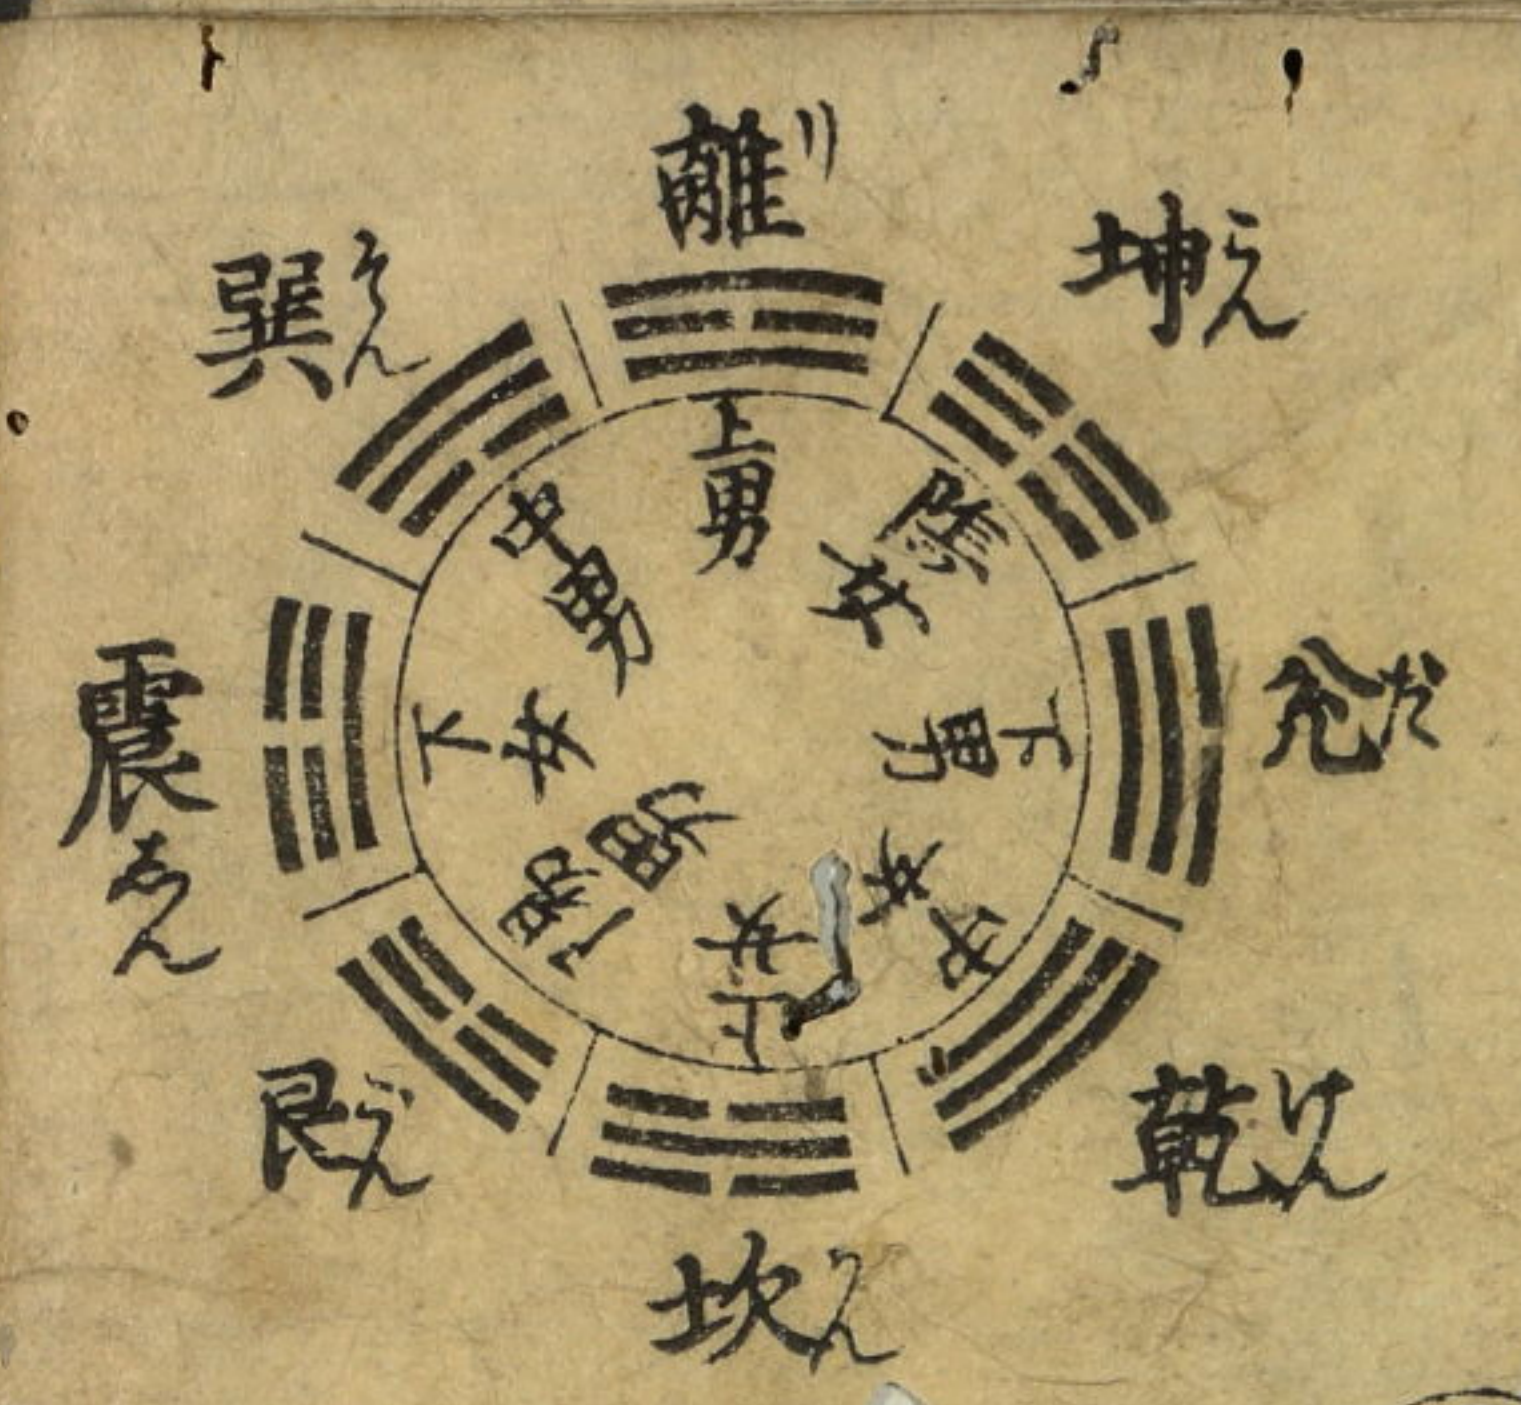 離 リ
坤 こん
兌 だ
乾 けん
坎 かん
艮 ごん
震 しん
巽 そん
上男
陰女
下男
中女
上女
男
下女
中男